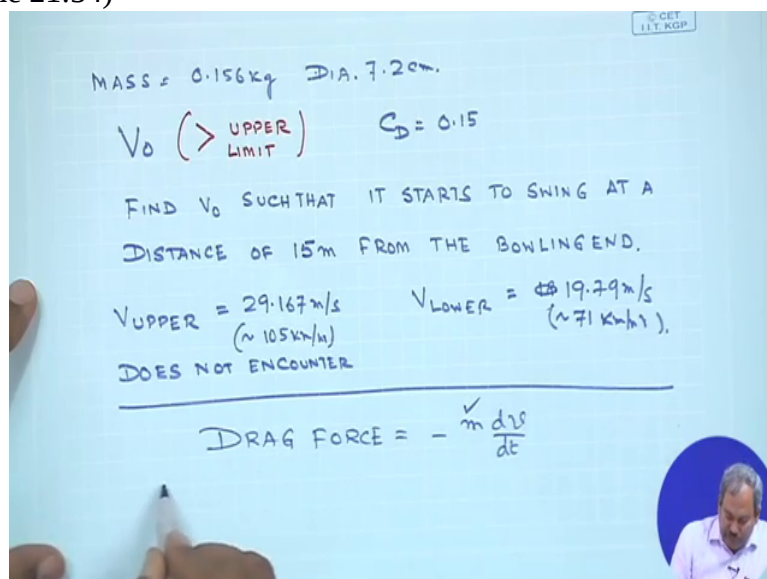 © CET
I.I.T. KGP
MASS = 0.156kg DIA. 7.2cm.
V₀ ( > UPPER LIMIT ) C_D = 0.15
FIND V₀ SUCH THAT IT STARTS TO SWING AT A
DISTANCE OF 15m FROM THE BOWLING END.
V_UPPER = 29.167m/s V_LOWER = 19.79m/s
(~ 105 km/h) (~71 Km/hr).
DOES NOT ENCOUNTER
DRAG FORCE = - m dv/dt